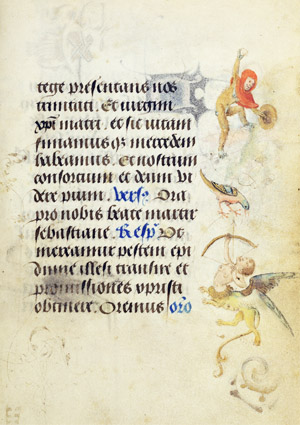 tege presentans nos
trinitati. Et virgini
xp̄i matri. et sic vitam
finiamus q̄ mercedem
habeamus. Et nostrum
consortium et deum vi
dere pium. Vers9 Ora
pro nobis beate martir
sebastiane. Resp9 Vt
mereamur pestem epi
dimie illesi transire et
promissiones xpristi
obtinere. Oremus oro